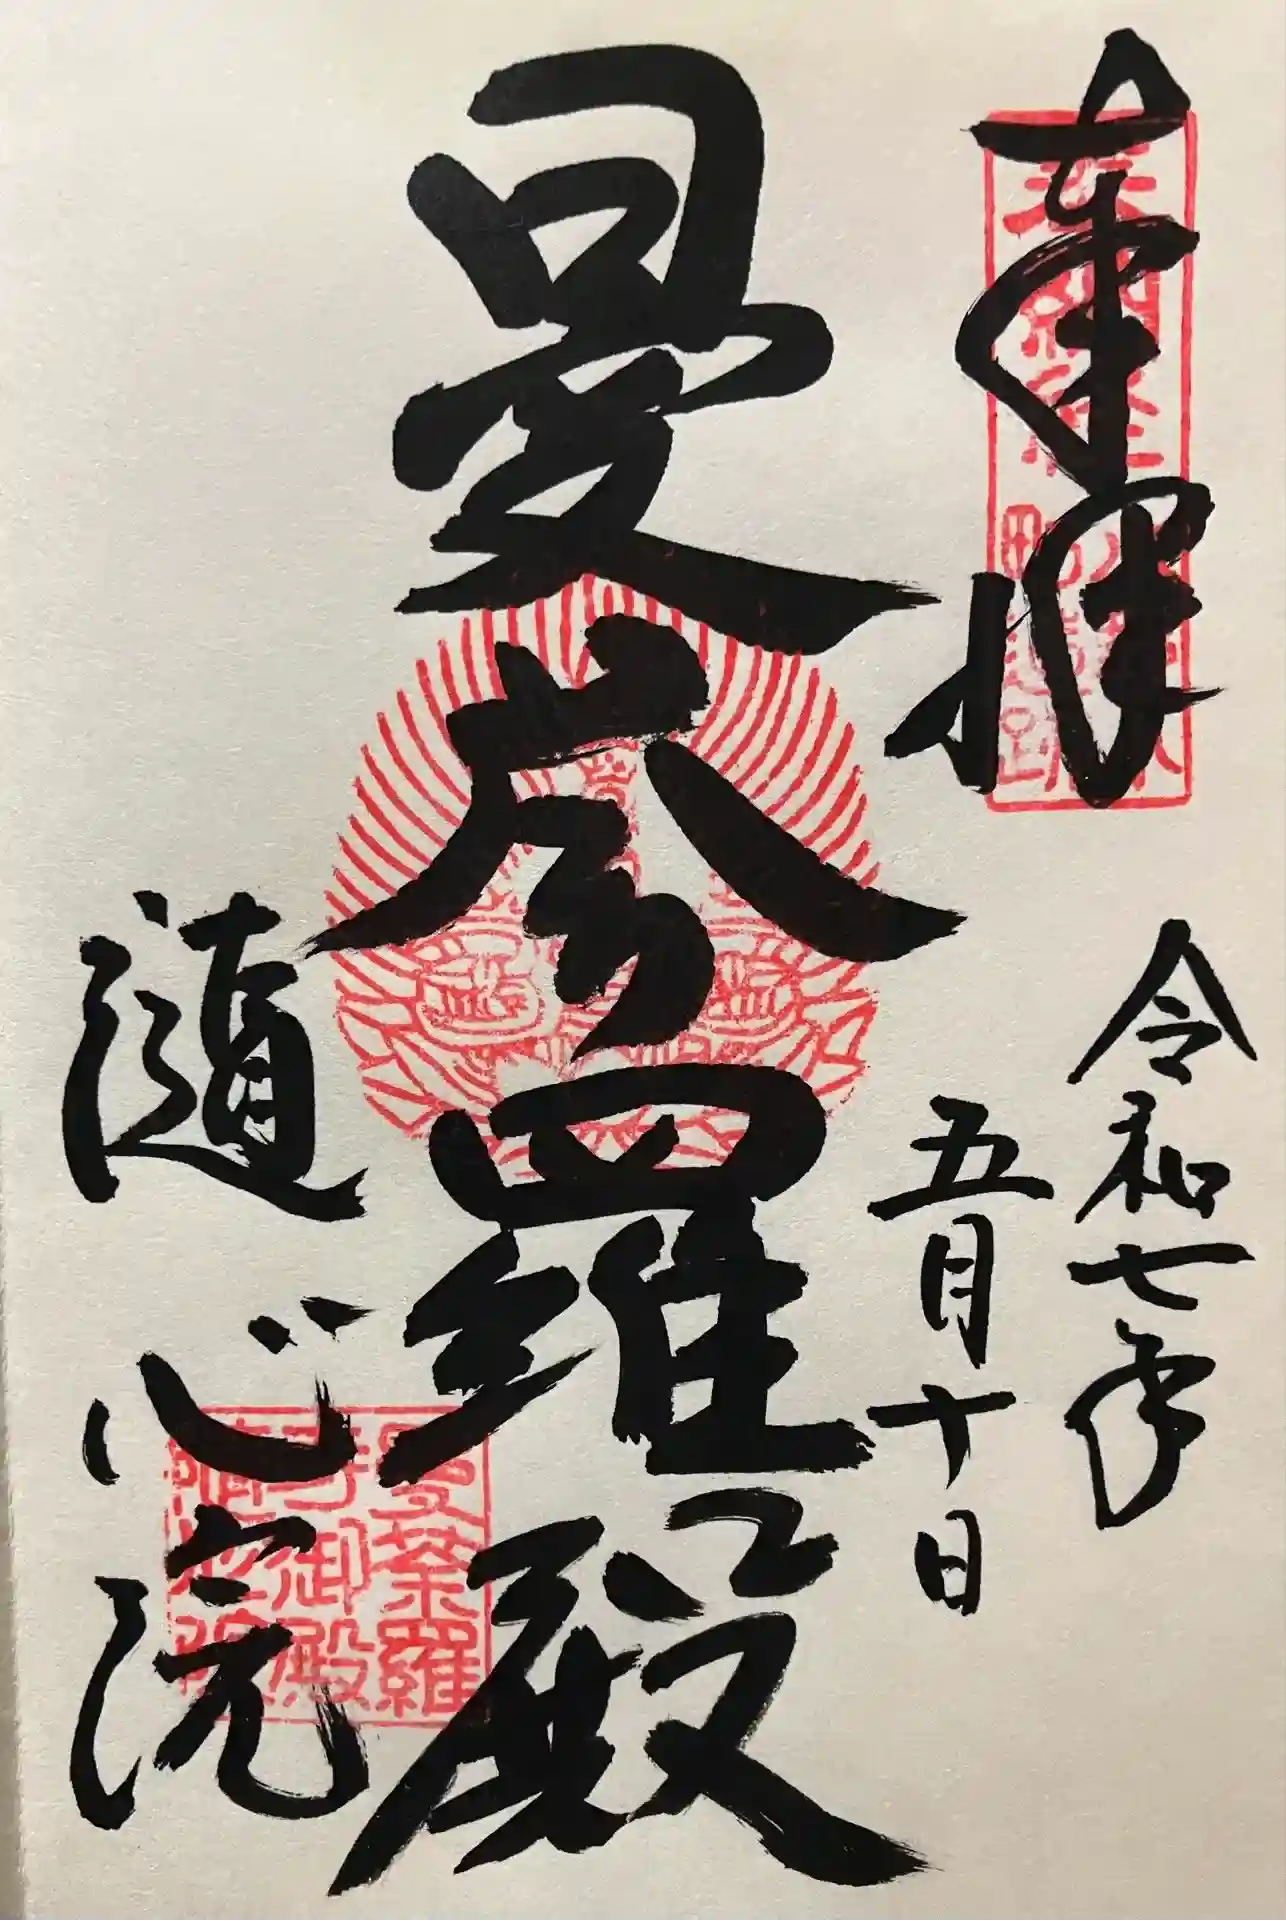 奉拝
令和七年
五月十日
曼荼羅殿
随心院
曼荼羅
寺御殿
随心院